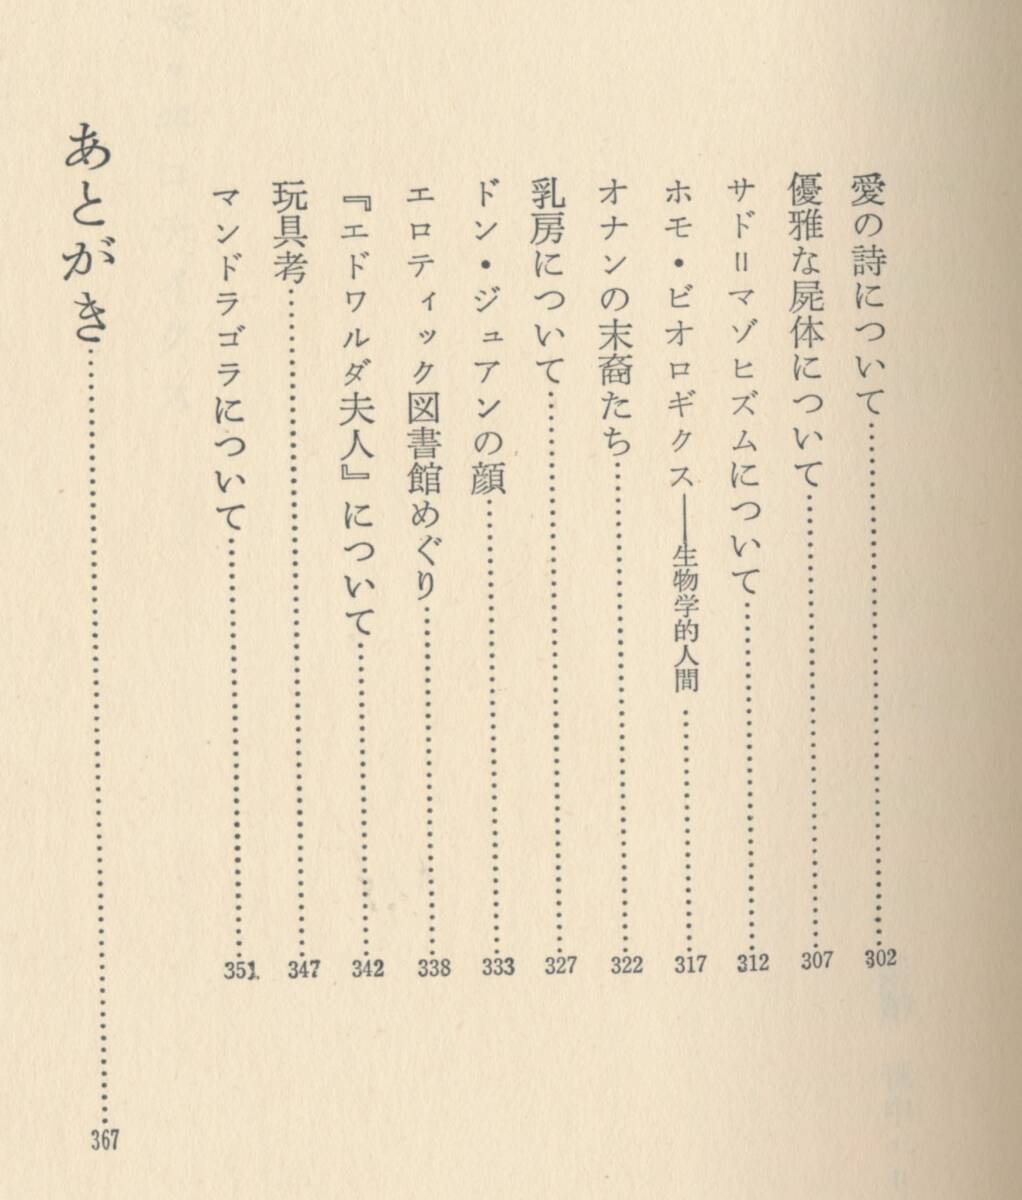 愛の詩について……302
優雅な屍体について……307
サド=マゾヒズムについて……312
ホモ・ビオロギクス――生物学的人間……317
オナンの末裔たち……322
乳房について……327
ドン・ジュアンの顔……333
エロティック図書館めぐり……338
『エドワルダ夫人』について……342
玩具考……347
マンドラゴラについて……351
あとがき……367